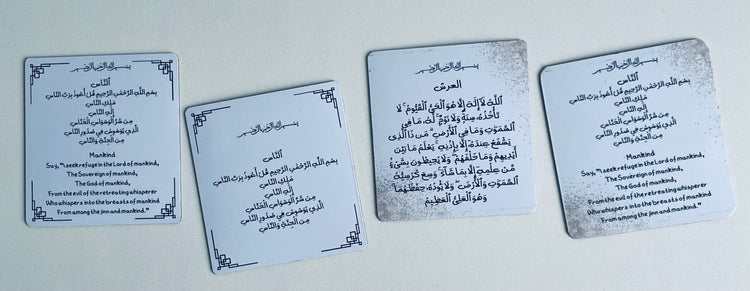 بسم الله الرحمن الرحيم
اَلنَّاس
بِسْمِ اللَّهِ الرَّحْمَٰنِ الرَّحِيمِ قُلْ أَعُوذُ بِرَبِّ النَّاسِ
مَلِكِ النَّاسِ
إِلَٰهِ النَّاسِ
مِن شَرِّ الْوَسْوَاسِ الْخَنَّاسِ
الَّذِي يُوَسْوِسُ فِي صُدُورِ النَّاسِ
مِنَ الْجِنَّةِ وَالنَّاسِ
Mankind
Say, "I seek refuge in the Lord of mankind,
The Sovereign of mankind,
The God of mankind,
From the evil of the retreating whisperer
Who whispers into the breasts of mankind
From among the jinn and mankind."
بسم الله الرحمن الرحيم
اَلنَّاس
بِسْمِ اللَّهِ الرَّحْمَٰنِ الرَّحِيمِ قُلْ أَعُوذُ بِرَبِّ النَّاسِ
مَلِكِ النَّاسِ
إِلَٰهِ النَّاسِ
مِن شَرِّ الْوَسْوَاسِ الْخَنَّاسِ
الَّذِي يُوَسْوِسُ فِي صُدُورِ النَّاسِ
مِنَ الْجِنَّةِ وَالنَّاسِ
بسم الله الرحمن الرحيم
العرش
اَللَّهُ لَآ إِلَٰهَ إِلَّا هُوَ الْحَيُّ الْقَيُّومُ ۚ لَا
تَأْخُذُهُ سِنَةٌ وَلَا نَوْمٌ ۚ لَّهُ مَا فِي
السَّمَٰوَٰتِ وَمَا فِي الْأَرْضِ ۗ مَن ذَا الَّذِي
يَشْفَعُ عِندَهُ إِلَّا بِإِذْنِهِ ۚ يَعْلَمُ مَا بَيْنَ
أَيْدِيهِمْ وَمَا خَلْفَهُمْ ۖ وَلَا يُحِيطُونَ بِشَيْءٍ
مِّنْ عِلْمِهِ إِلَّا بِمَا شَآءَ ۚ وَسِعَ كُرْسِيُّهُ
السَّمَٰوَٰتِ وَالْأَرْضَ ۖ وَلَا يَئُودُهُ حِفْظُهُمَا ۚ
وَهُوَ الْعَلِيُّ الْعَظِيمُ
بسم الله الرحمن الرحيم
اَلنَّاس
بِسْمِ اللَّهِ الرَّحْمَٰنِ الرَّحِيمِ قُلْ أَعُوذُ بِرَبِّ النَّاسِ
مَلِكِ النَّاسِ
إِلَٰهِ النَّاسِ
مِن شَرِّ الْوَسْوَاسِ الْخَنَّاسِ
الَّذِي يُوَسْوِسُ فِي صُدُورِ النَّاسِ
مِنَ الْجِنَّةِ وَالنَّاسِ
Mankind
Say, "I seek refuge in the Lord of mankind,
The Sovereign of mankind,
The God of mankind,
From the evil of the retreating whisperer
Who whispers into the breasts of mankind
From among the jinn and mankind."